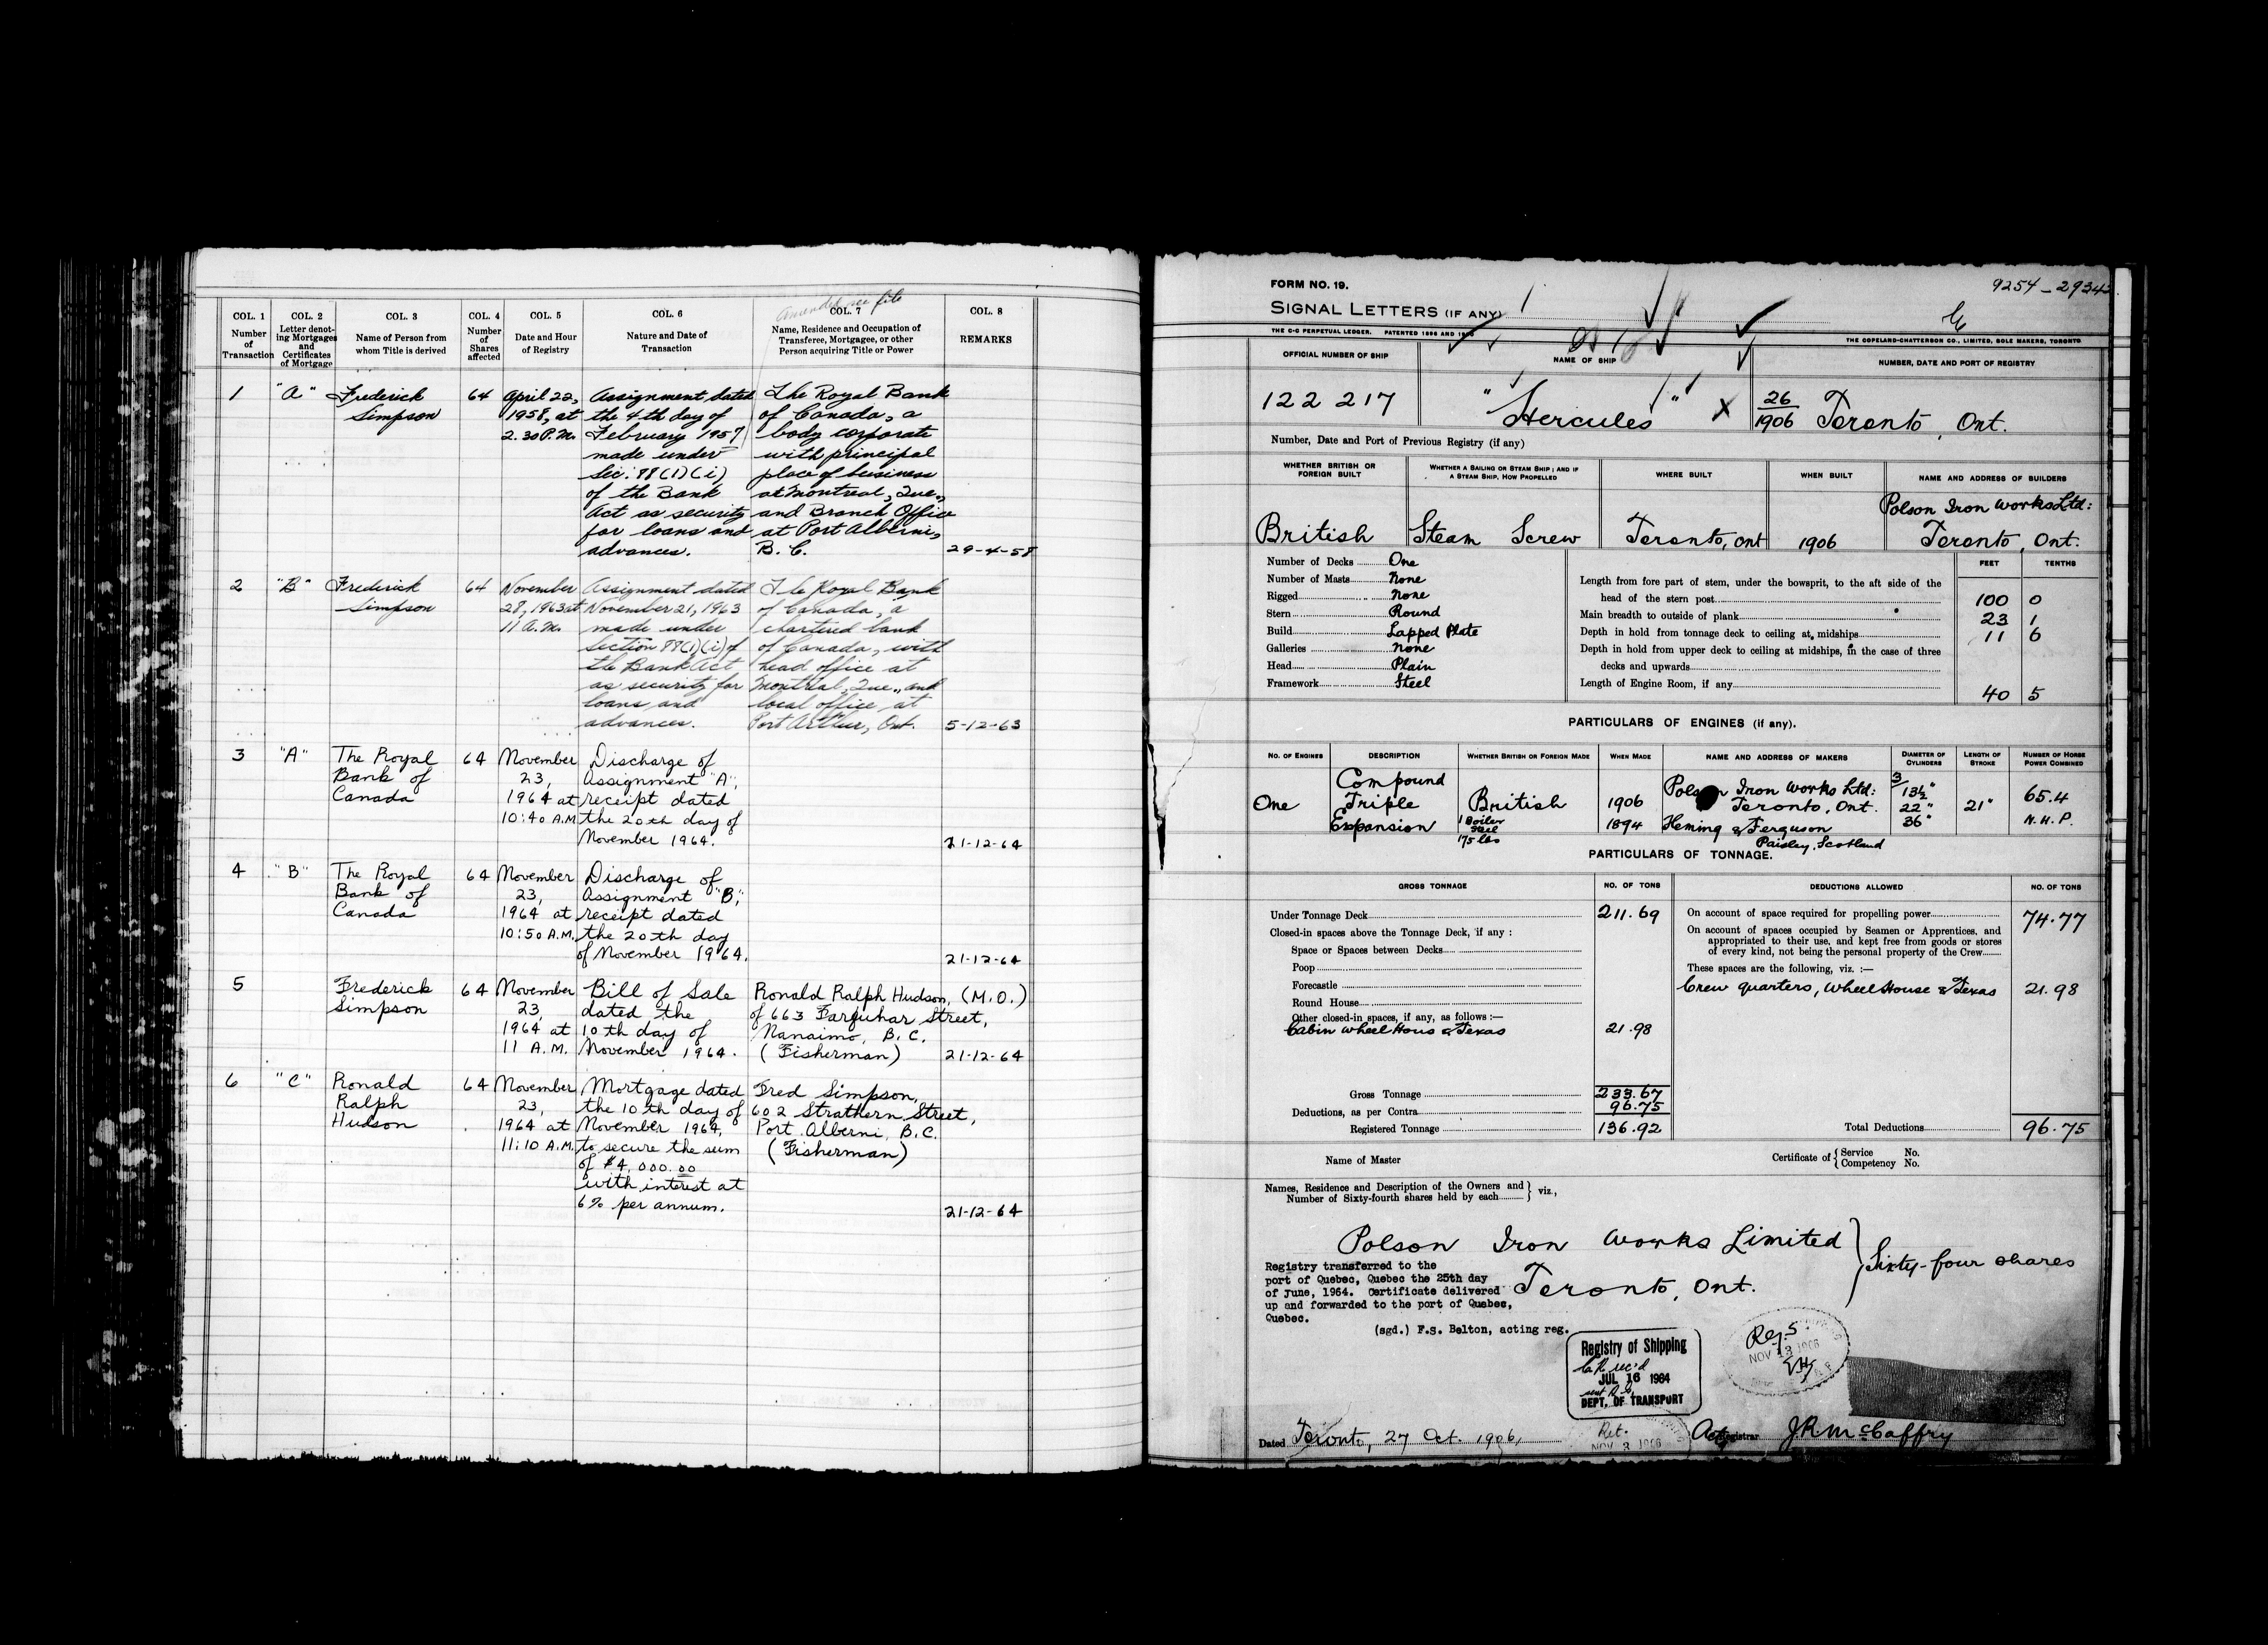 Amended see file
COL. 1 COL. 2 COL. 3 COL. 4 COL. 5 COL. 6 COL. 7 COL. 8
Number of Transaction
Letter denoting Mortgages and Certificates of Mortgage
Name of Person from whom Title is derived
Number of Shares affected
Date and Hour of Registry
Nature and Date of Transaction
Name, Residence and Occupation of Transferee, Mortgagee, or other Person acquiring Title or Power
REMARKS
1 "A" Frederick 64 April 22, Assignment dated The Royal Bank
Simpson 1958, at the 4th day of of Canada, a
2.30 P.M. February 1957 body corporate
made under with principal
Sec. 88(1)(i) place of business
of the Bank at Montreal, Que.,
Act as security and Branch Office
for loans and at Port Alberni,
advances. B.C. 29-4-58
2 "B" Frederick 64 November Assignment dated The Royal Bank
Simpson 28, 1963 at November 21, 1963 of Canada, a
11 A.M. made under chartered bank
Section 88(1)(i) of of Canada, with
the Bank Act head office at
as security for Montreal, Que., and
loans and local office at
advances. Port Arthur, Ont. 5-12-63
3 "A" The Royal 64 November Discharge of
Bank of 23, Assignment "A",
Canada 1964 at receipt dated
10:40 A.M. the 20th day of
November 1964. 21-12-64
4 "B" The Royal 64 November Discharge of
Bank of 23, Assignment "B",
Canada 1964 at receipt dated
10:50 A.M. the 20th day
of November 1964. 21-12-64
5 Frederick 64 November Bill of Sale Ronald Ralph Hudson, (M.O.)
Simpson 23, dated the of 663 Farquhar Street,
1964 at 10th day of Nanaimo, B.C.
11 A.M. November 1964. (Fisherman) 21-12-64
6 "C" Ronald 64 November Mortgage dated Fred Simpson,
Ralph 23, the 10th day of 602 Strathern Street,
Hudson 1964 at November 1964, Port Alberni, B.C.
11:10 A.M. to secure the sum (Fisherman)
of $4,000.00
with interest at
6% per annum. 21-12-64
FORM NO. 19.
9254-29342
SIGNAL LETTERS (IF ANY)
THE C-C PERPETUAL LEDGER. PATENTED 1896 AND
THE COPELAND-CHATTERSON CO., LIMITED, SOLE MAKERS, TORONTO
OFFICIAL NUMBER OF SHIP NAME OF SHIP NUMBER, DATE AND PORT OF REGISTRY
122 217 "Hercules" X 26/1906 Toronto, Ont.
Number, Date and Port of Previous Registry (if any)
WHETHER BRITISH OR FOREIGN BUILT
WHETHER A SAILING OR STEAM SHIP; AND IF A STEAM SHIP, HOW PROPELLED
WHERE BUILT
WHEN BUILT
NAME AND ADDRESS OF BUILDERS
Polson Iron Works Ltd:
British Steam Screw Toronto, Ont 1906 Toronto, Ont.
Number of Decks One
Number of Masts None
Rigged None
Stern Round
Build Lapped Plate
Galleries None
Head Plain
Framework Steel
FEET TENTHS
Length from fore part of stem, under the bowsprit, to the aft side of the
head of the stern post 100 0
Main breadth to outside of plank 23 1
Depth in hold from tonnage deck to ceiling at midships 11 6
Depth in hold from upper deck to ceiling at midships, in the case of three
decks and upwards
Length of Engine Room, if any 40 5
PARTICULARS OF ENGINES (if any).
NO. OF ENGINES DESCRIPTION WHETHER BRITISH OR FOREIGN MADE WHEN MADE NAME AND ADDRESS OF MAKERS DIAMETER OF CYLINDERS LENGTH OF STROKE NUMBER OF HORSE POWER COMBINED
Compound 3
One Triple British 1906 Polson Iron Works Ltd: 13½" 65.4
Toronto, Ont. 22" 21"
Expansion 1 Boiler 1894 Heming & Ferguson 36" N.H.P.
Steel
175 lbs Paisley, Scotland
PARTICULARS OF TONNAGE.
GROSS TONNAGE NO. OF TONS DEDUCTIONS ALLOWED NO. OF TONS
Under Tonnage Deck 211.69
Closed-in spaces above the Tonnage Deck, if any :
Space or Spaces between Decks
Poop
Forecastle
Round House
Other closed-in spaces, if any, as follows :—
Cabin Wheel Hous & Texas 21.98
Gross Tonnage 233.67
Deductions, as per Contra 96.75
Registered Tonnage 136.92
On account of space required for propelling power 74.77
On account of spaces occupied by Seamen or Apprentices, and
appropriated to their use, and kept free from goods or stores
of every kind, not being the personal property of the Crew
These spaces are the following, viz. :—
Crew quarters, Wheel House & Texas 21.98
Total Deductions 96.75
Name of Master
Certificate of { Service No.
Competency No.
Names, Residence and Description of the Owners and
Number of Sixty-fourth shares held by each } viz.,
Polson Iron Works Limited
Toronto, Ont.
Sixty-four shares
Registry transferred to the
port of Quebec, Quebec the 25th day
of June, 1964. Certificate delivered
up and forwarded to the port of Quebec,
Quebec.
(sgd.) F.S. Belton, acting reg.
Registry of Shipping
C.R. rec'd
JUL 16 1964
DEPT. OF TRANSPORT
Reg. S.
NOV 13 1906
Ret.
NOV 3 1906
Dated Toronto, 27 Oct. 1906, Actg Registrar J R McCaffry